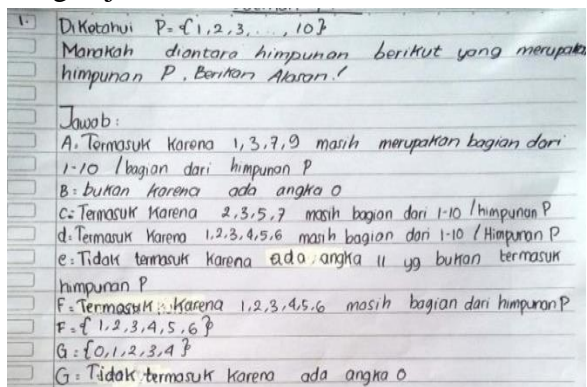 1. Diketahui P = {1,2,3, ..., 10}
Manakah diantara himpunan berikut yang merupakan
himpunan P. Berikan Alasan!
Jawab:
A. Termasuk Karena 1,3,7,9 masih merupakan bagian dari
1-10 / bagian dari himpunan P
B = bukan karena ada angka 0
C = Termasuk Karena 2,3,5,7 masih bagian dari 1-10 / himpunan P
d. Termasuk Karena 1,2,3,4,5,6 masih bagian dari 1-10 / Himpunan P
e = Tidak termasuk karena ada angka 11 yg bukan termasuk
himpunan P
F = Termasuk Karena 1,2,3,4,5,6 masih bagian dari himpunan P
F = { 1,2,3,4,5,6 }
G = {0,1,2,3,4 }
G = Tidak termasuk Karena ada angka 0